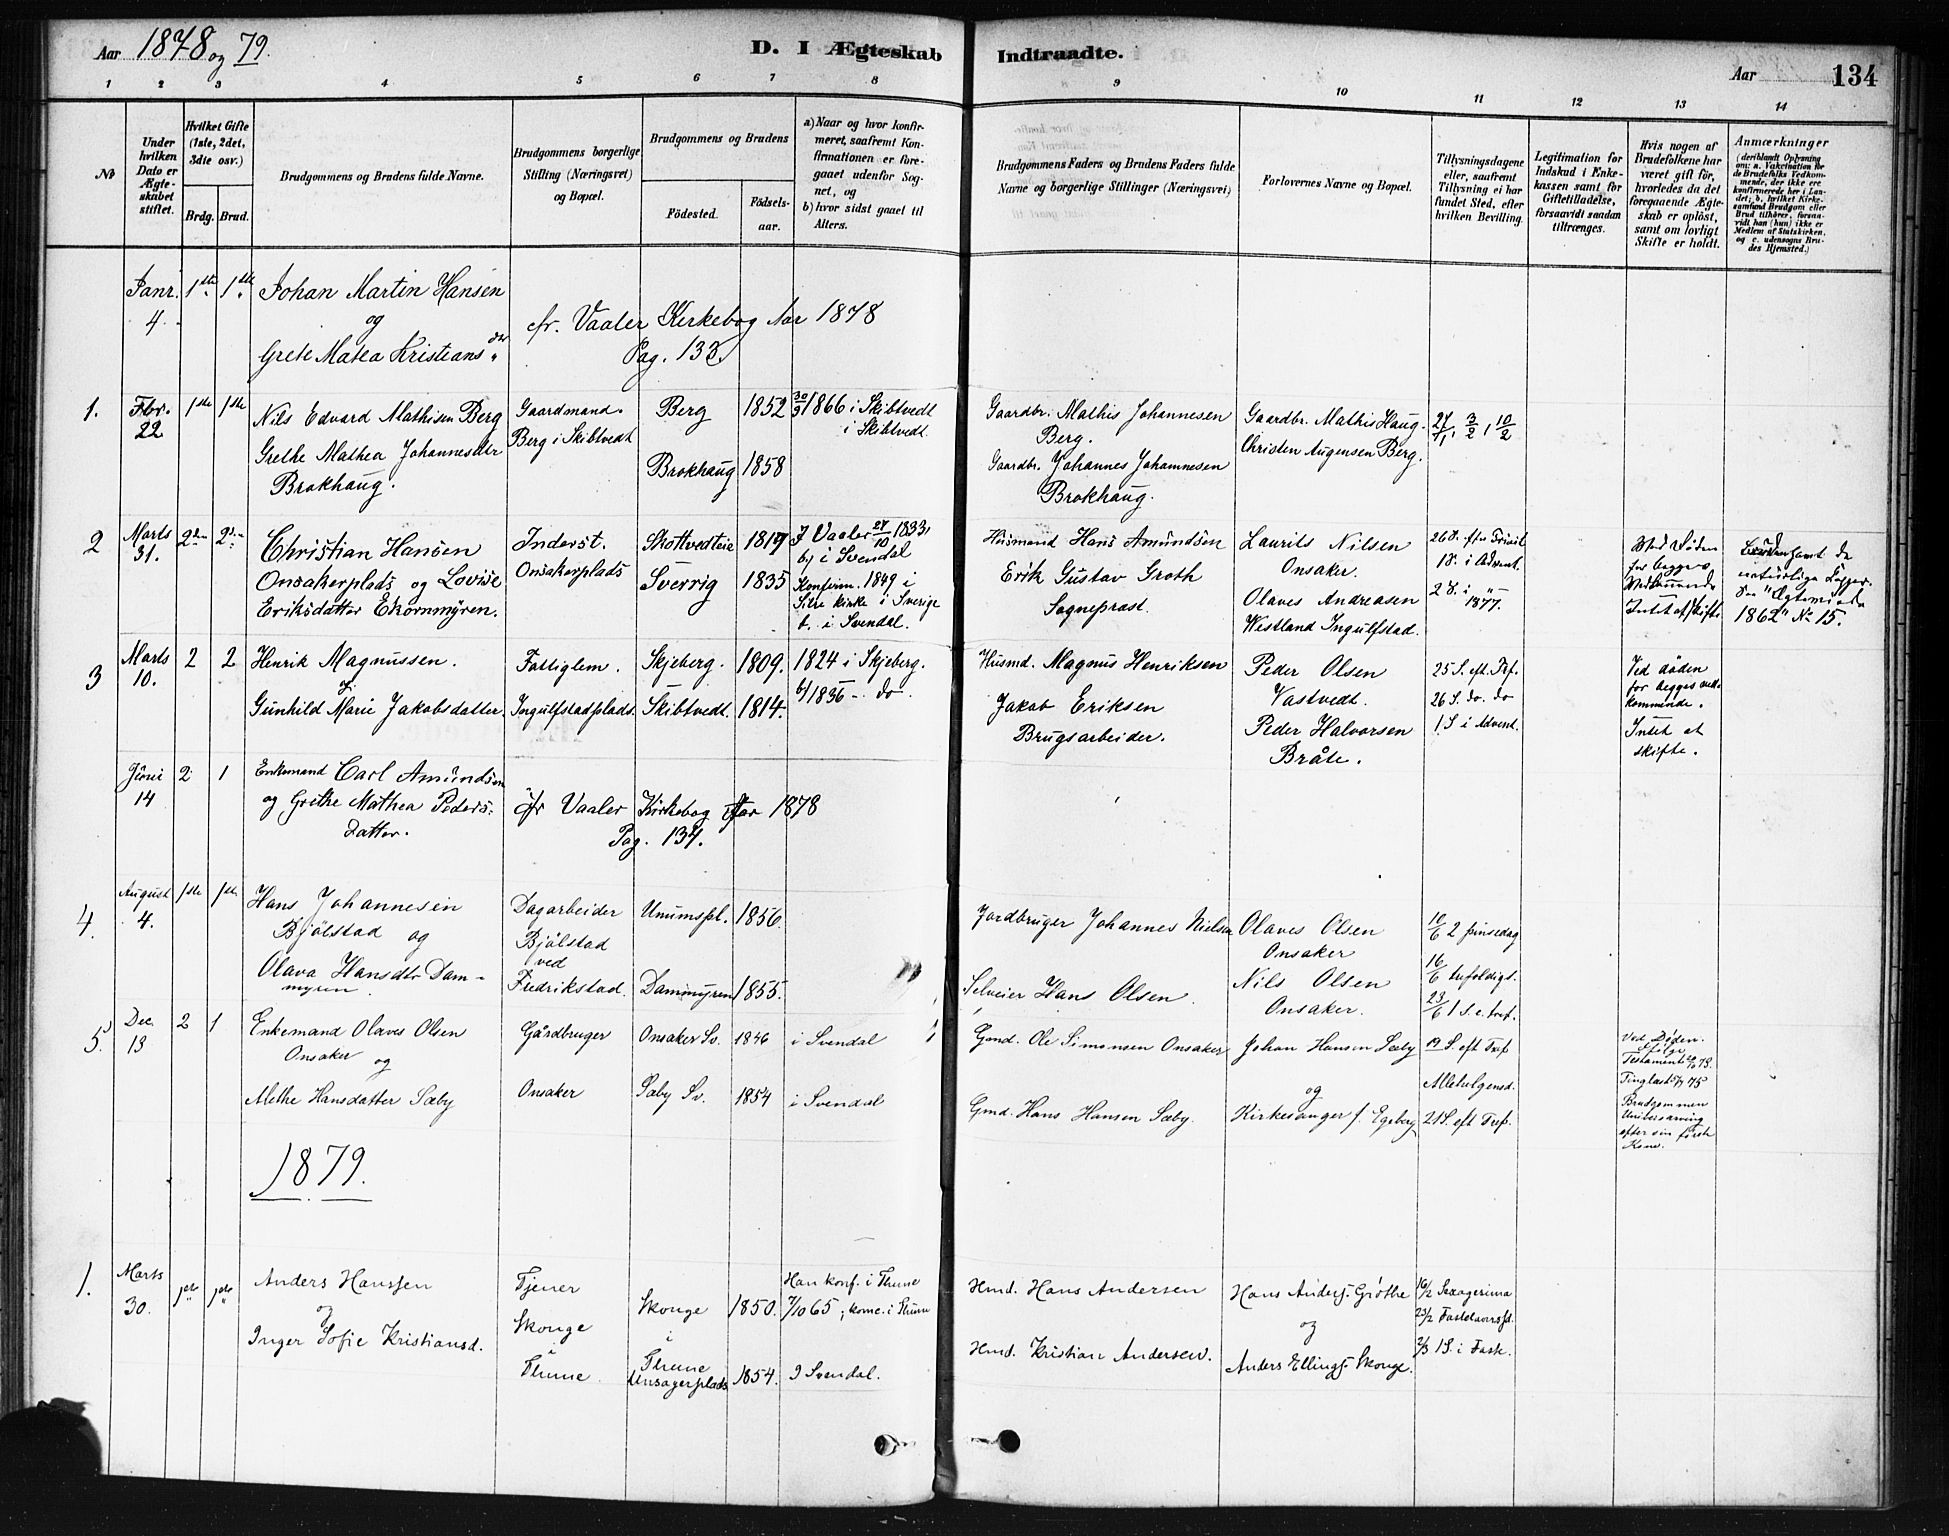 Aar 1878 og 79.
D. I Ægteskab Indtraadte.
Aar 134
1 2 3 4 5 6 7 8 9 10 11 12 13 14
No
Under hvilken Dato er Ægteskabet stiftet.
Hvilket Gifte (1ste, 2det, 3die osv.)
Brdg. Brud.
Brudgommens og Brudens fulde Navne.
Brudgommens borgerlige Stilling (Næringsvei) og Bopæl.
Brudgommens og Brudens
Födested.
Födsels-aar.
a) Naar og hvor konfirmeret, saafremt Konfirmationen er foregaaet udenfor Sognet, og
b) hvor sidst gaaet til Alters.
Brudgommens Faders og Brudens Faders fulde Navne og borgerlige Stillinger (Næringsvei)
Forlovernes Navne og Bopæl.
Tillysningsdagene eller, saafremt Tillysning ei har fundet Sted, efter hvilken Bevilling.
Legitimation for Indskud i Enkekassen samt for Giftetilladelse, forsaavidt saadan tiltrænges.
Hvis nogen af Brudefolkene har været gift för, hvorledes da det foregaaende Ægteskab er oplöst, samt om lovligt Skifte er holdt.
Anmærkninger
(deriblandt Oplysning om: a. Vakcination for de Brudefolks Vedkommende, der ikke ere konfirmerede her i Landet; b. hvilket Kirkesamfund Brudgom eller Brud tilhörer, forsaavidt han (hun) ikke er Medlem af Statskirken, og c. udensogns Brudes Hjemsted.)
Janr. 4. 1ste 1ste Johan Martin Hansen
og
Grete Matea Kristiansdr.
cfr. Vaaler Kirkebog Aar 1878
Pag. 133.
1. Febr. 22 1ste 1ste
Nils Edvard Mathisen Berg
Grethe Mathea Johannesdtr
Brokhaug.
Gaardmand.
Berg i Skibtvedt
Berg 1852 30/9 1866 i Skibtvedt
i Skibtvedt.
Brokhaug 1858
Gaardbr. Mathis Johannesen
Berg.
Gaardbr. Johannes Johannesen
Brokhaug.
Gaardbr. Mathis Haug.
Christen Augensen Berg.
27/1, 3/2, 10/2
2 Marts 31.
Christian Hansen
Onsakerplads og Lovise
Eriksdatter Ekornmyren.
Inderst.
Onsakerplads
Skottvedteie 1817
Sverrig 1835
I Vaaler 27/10 1833,
b) i Svendal
Konfirm. 1849 i
kirke i Sverige
b. i Svendal.
Husmand Hans Amundsen
Erik Gustav Groth
Sogneprast.
Laurits Nilsen
Onsaker.
Olaves Andreasen
Westland Ingulfstad.
26 S. efter
1 S. i Advent.
2 S. i "
1877.
Ved Döden
for begges
Vedkommende
Intet at skifte
naturlige
1862" No 15.
3 Marts 10. 2 2
Henrik Magnussen.
og
Gunhild Marie Jakobsdatter.
Fattiglem.
Ingulfstadplads.
Skjeberg. 1809.
Skibtvedt. 1814.
1824 i Skjeberg.
b/ 1836 - do.
Husmd. Magnus Henriksen
Jakob Eriksen
Brugsarbeider.
Peder Olsen
Vastvedt.
Peder Halvorsen
Bråte.
25 S. eft. Tref.
26 S. do. do
1 S i Advent.
Ved döden
for begges vedkommende.
Intet at
skifte.
Juni 14 2 1
Enkemand Carl Amundsen
og Grethe Mathea Peders-
datter.
cfr Vaaler Kirkebog for 1878
Pag. 134.
4. August 4. 1ste 1ste
Hans Johannesen
Bjölstad og
Olava Hansdtr Dam-
myren
Dagarbeider
Bjölstad
ved
Fredrikstad.
Unumspl. 1856.
Dammyren 1855.
Jordbruger Johannes Nielsen
Selveier Hans Olsen.
Olaves Olsen
Onsaker
Nils Olsen
Onsaker.
10/6 2 pinsedag
16/6 trefoldigt.
23/6 1 S. e. tref.
5. Dec. 13 2 1
Enkemand Olaves Olsen
Onsaker og
Methe Hansdatter Sæby
Gårdbruger
Onsaker
Onsaker Sv. 1846 i Svendal
Sæby Sv. 1854 i Svendal
Gmd. Ole Simensen Onsaker
Gmd. Hans Hansen Sæby.
Johan Hansen Sæby
og
Kirkesanger f. Egeberg
19 S. eft Tref
Allehelgensd.
21 S. eft Tref.
Ved Döden.
Ifölge
Testament
Tinglæst 75
Brudgommen
Universarving
efter sin förste
Kone.
1879.
1. Marts 30. 1ste 1ste
Anders Hanssen
og
Inger Sofie Kristiansd.
Tjener
Skonge
i
Thune.
Skonge 1850.
i
Thune
Unsagerplads 1854.
Han konf. i Thune
7/10 65; kome. i Thune
I Svendal.
Hmd. Hans Andersen
Hmd. Kristian Andersen.
Hans Anders. Gröthe
og
Anders Ellings. Skonge.
16/2 Sexagesima
23/2 Fastelavnssd.
2/3 1 S. i Faste.